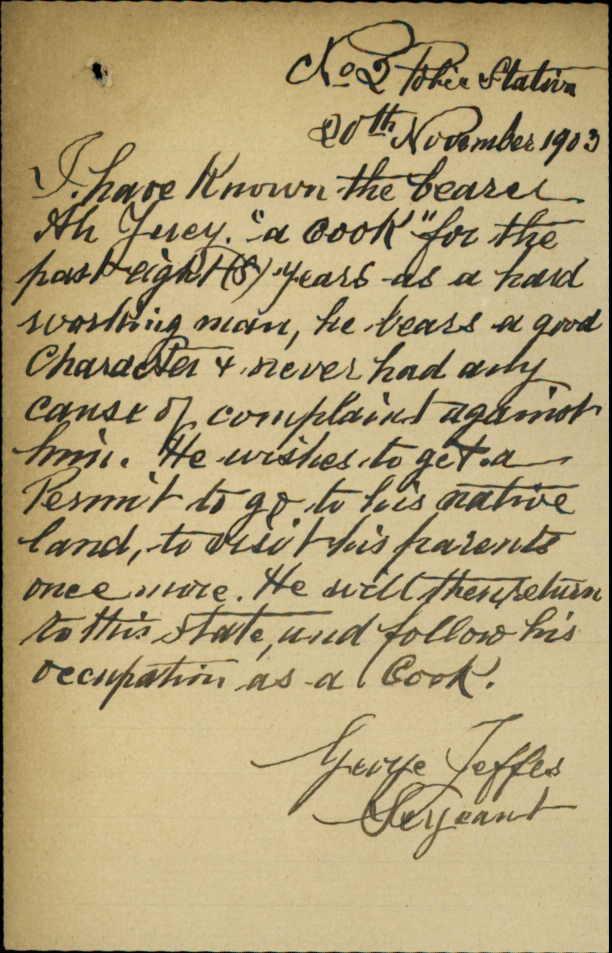 No 2 Police Station
20th November 1903
I have Known the bearer
Ah Yuey. "a Cook" for the
past eight (8) years as a hard
working man, he bears a good
Character & never had any
cause of complaint against
him. He wishes to get a
Permit to go to his native
land, to visit his parents
once more. He will then return
to this state, and follow his
occupation as a Cook.
George Jeffes
Sergeant